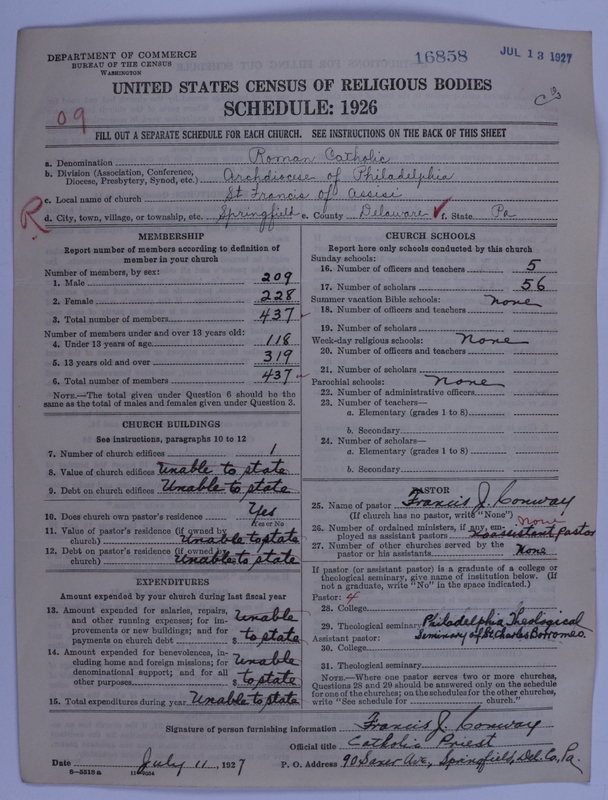 DEPARTMENT OF COMMERCE
BUREAU OF THE CENSUS
WASHINGTON
16858
JUL 13 1927
UNITED STATES CENSUS OF RELIGIOUS BODIES
SCHEDULE: 1926
09
FILL OUT A SEPARATE SCHEDULE FOR EACH CHURCH. SEE INSTRUCTIONS ON THE BACK OF THIS SHEET
a. Denomination Roman Catholic
b. Division (Association, Conference, Diocese, Presbytery, Synod, etc.) Archdiocese of Philadelphia
c. Local name of church St Francis of Assisi
R
d. City, town, village, or township, etc. Springfield e. County Delaware f. State Pa
MEMBERSHIP
Report number of members according to definition of
member in your church
Number of members, by sex:
1. Male 209
2. Female 228
3. Total number of members 437
Number of members under and over 13 years old:
4. Under 13 years of age 118
5. 13 years old and over 319
6. Total number of members 437
NOTE.—The total given under Question 6 should be
same as the total of males and females given under Question 3.
CHURCH BUILDINGS
See instructions, paragraphs 10 to 12
7. Number of church edifices 1
8. Value of church edifices Unable to state
9. Debt on church edifices Unable to state
10. Does church own pastor's residence Yes
Yes or No
11. Value of pastor's residence (if owned by
church) Unable to state
12. Debt on pastor's residence (if owned by
church) Unable to state
EXPENDITURES
Amount expended by your church during last fiscal year
13. Amount expended for salaries, repairs,
and other running expenses; for im-
provements or new buildings; and for
payments on church debt $ Unable to state
14. Amount expended for benevolences, in-
cluding home and foreign missions; for
denominational support; and for all
other purposes $ Unable to state
15. Total expenditures during year Unable to state
CHURCH SCHOOLS
Report here only schools conducted by this church
Sunday schools:
16. Number of officers and teachers 5
17. Number of scholars 56
Summer vacation Bible schools: none
18. Number of officers and teachers
19. Number of scholars
Week-day religious schools: None
20. Number of officers and teachers
21. Number of scholars
Parochial schools: None
22. Number of administrative officers
23. Number of teachers—
a. Elementary (grades 1 to 8)
b. Secondary
24. Number of scholars—
a. Elementary (grades 1 to 8)
b. Secondary
PASTOR
25. Name of pastor Francis J. Conway
(If church has no pastor, write "None")
26. Number of ordained ministers, if any, em-
ployed as assistant pastors none no assistant Pastor
27. Number of other churches served by the
pastor or his assistants None
If pastor (or assistant pastor) is a graduate of a college or
theological seminary, give name of institution below. (If
not a graduate, write "No" in the space indicated.)
Pastor: 4
28. College
29. Theological seminary Philadelphia Theological
Seminary of St. Charles Borromeo.
Assistant pastor:
30. College
31. Theological seminary
NOTE.—Where one pastor serves two or more churches,
Questions 28 and 29 should be answered only on the schedule
for one of the churches; on the schedules for the other churches,
write "See schedule for church."
Signature of person furnishing information Francis J. Conway
Official title Catholic Priest
Date July 11, 1927 P. O. Address 90 Saxer Ave, Springfield, Del. Co, Pa.
8—5519a